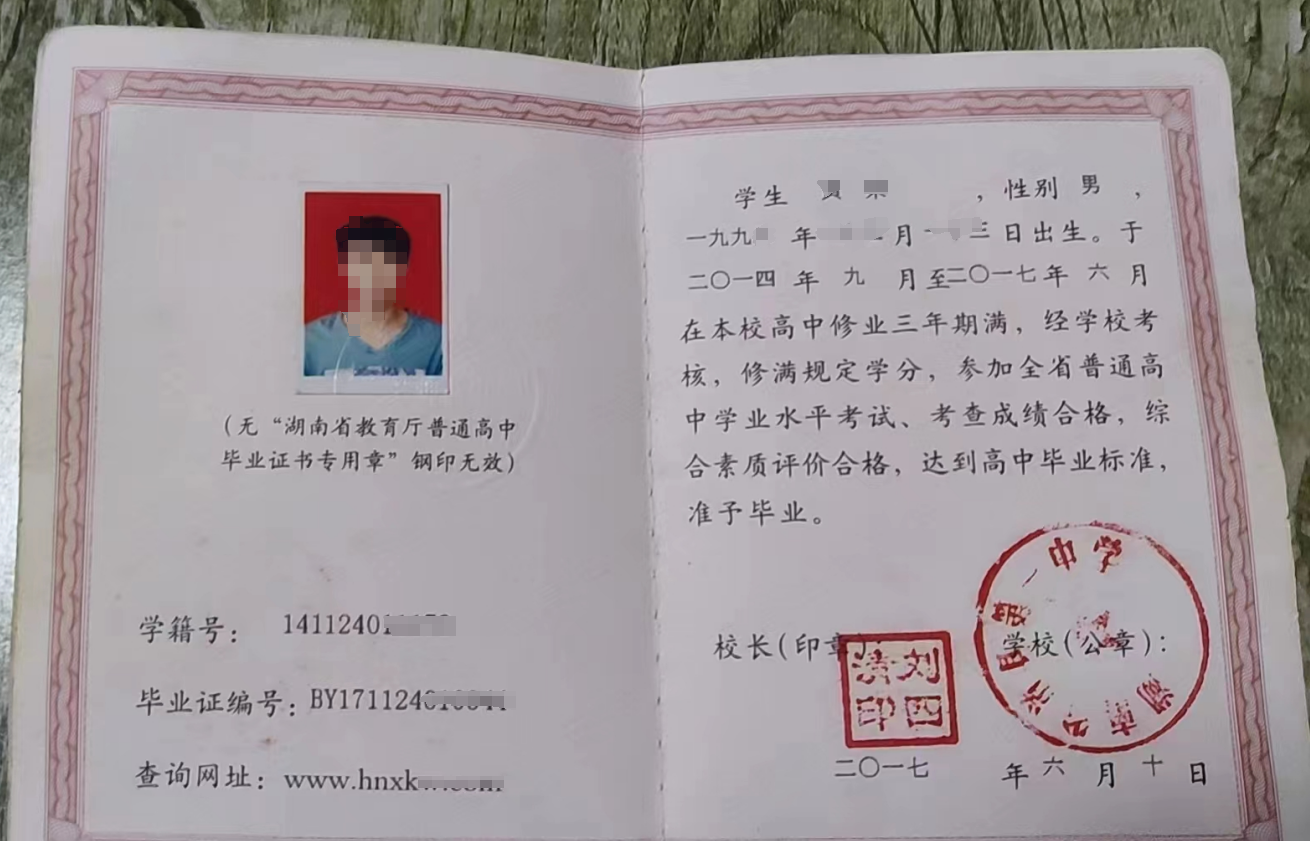 （无“湖南省教育厅普通高中
毕业证书专用章”钢印无效）
学籍号： 1411240
毕业证编号：BY171124
查询网址：www.hnxk
学生 ，性别 男 ，
一九九 年 月 三日出生。于
二〇一四 年 九 月至二〇一七年 六 月
在本校高中修业三年期满，经学校考
核，修满规定学分，参加全省普通高
中学业水平考试、考查成绩合格，综
合素质评价合格，达到高中毕业标准，
准予毕业。
校长(印章)： 学校(公章)：
刘四清印
湖南 县第一中学
二〇一七 年 六 月 十 日